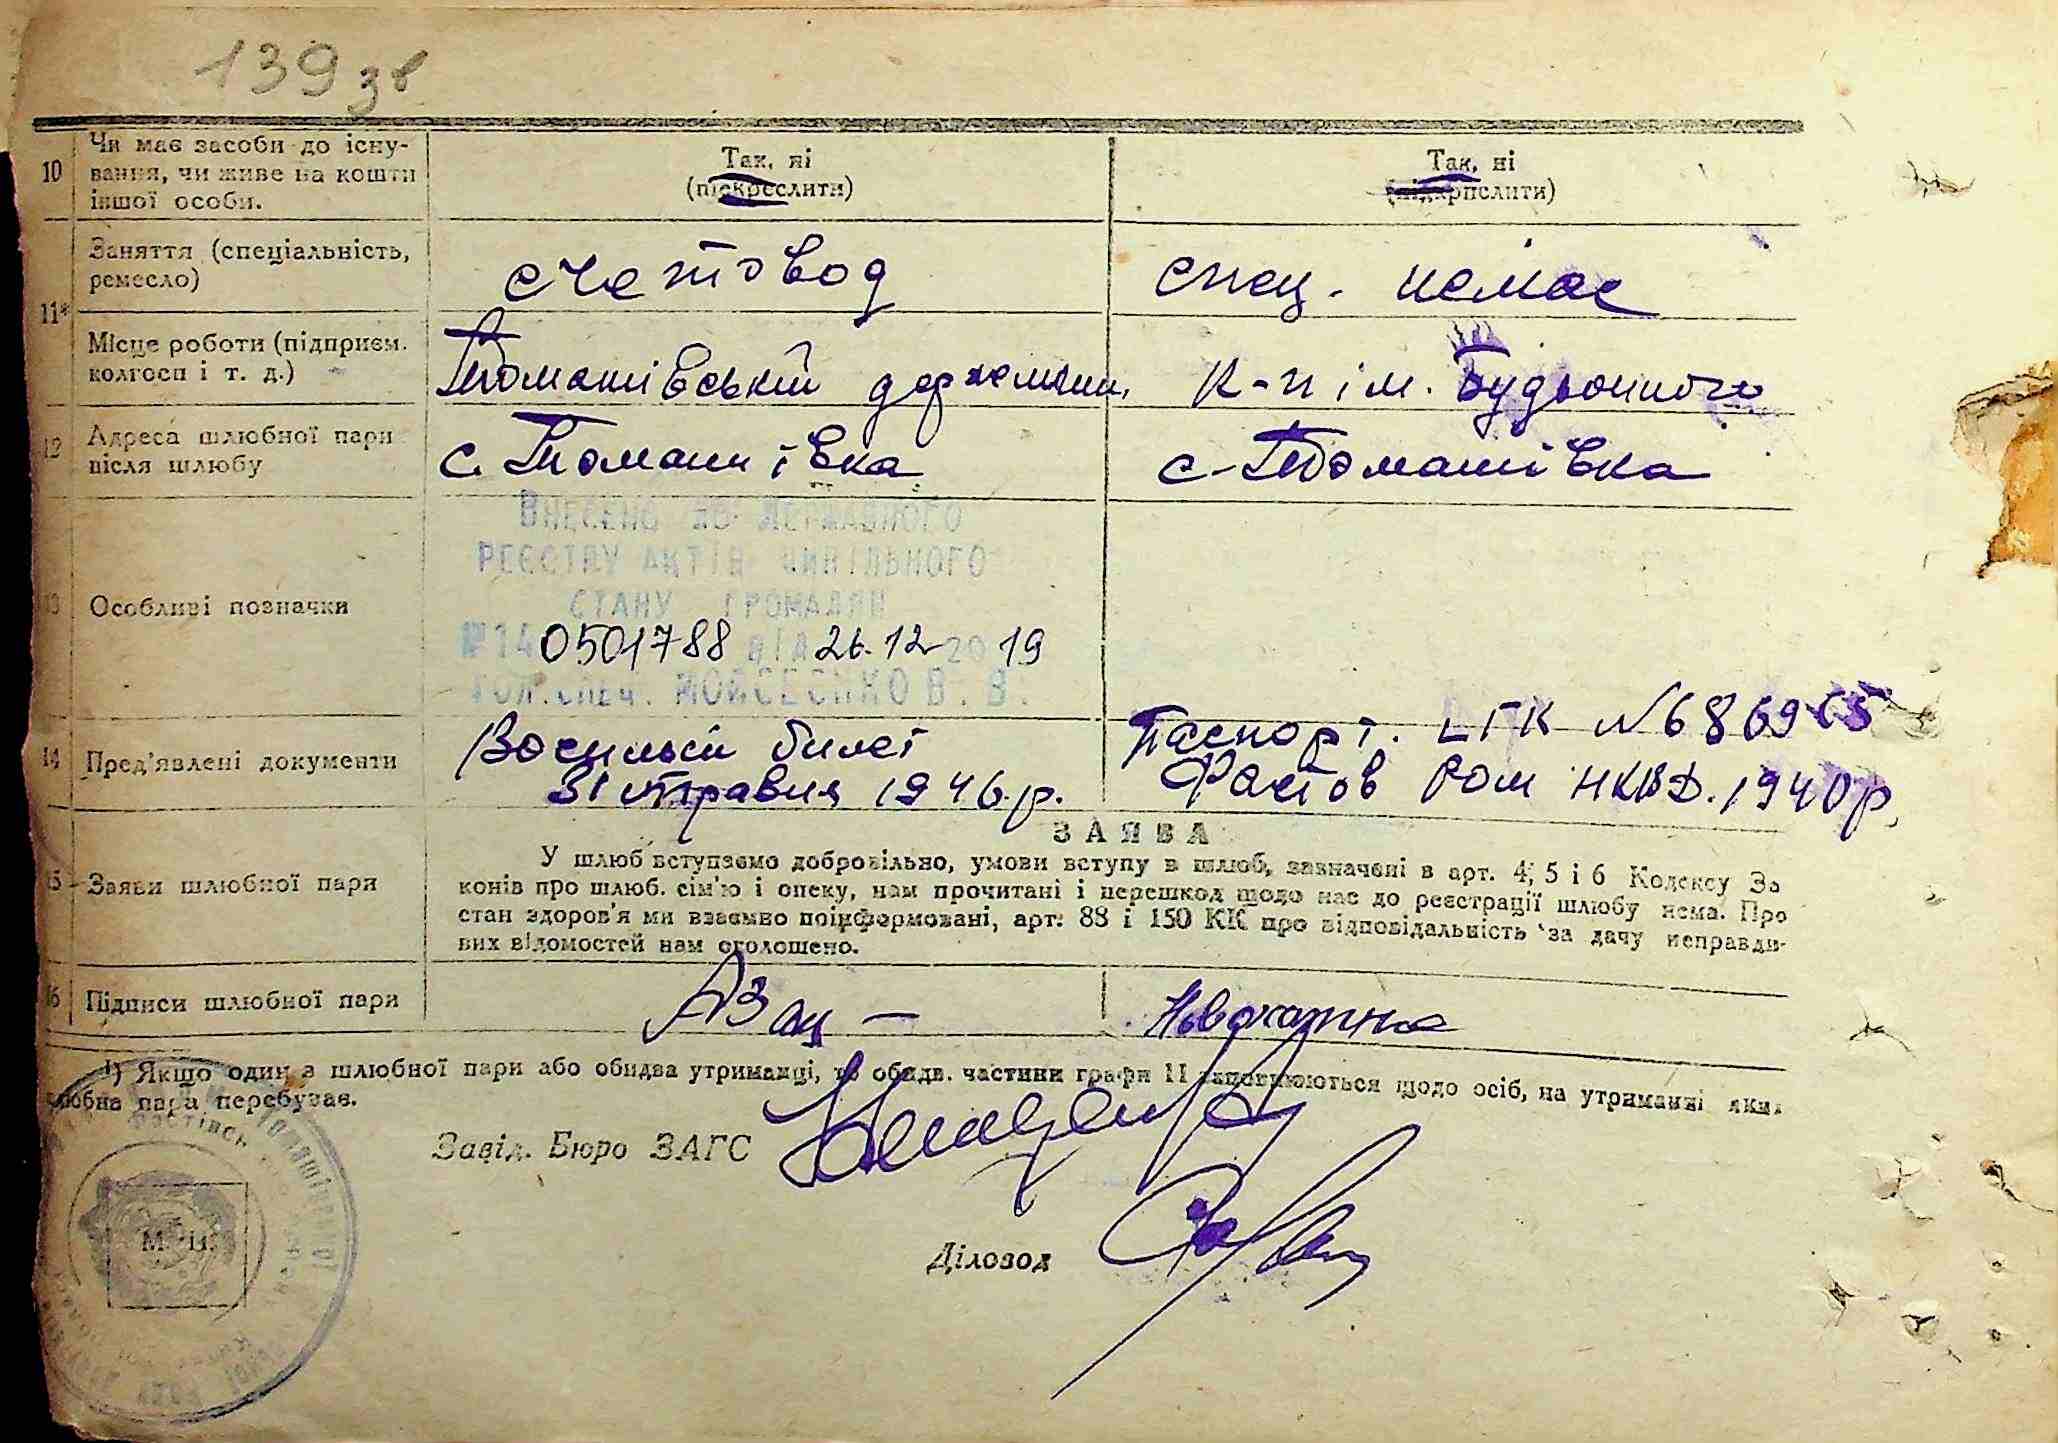 139 зв
10
Чи має засоби до існу-
вання, чи живе на кошти
іншої особи.
Так, ні
(підкреслити)
Так, ні
(підкрпслити)
11*
Заняття (спеціальність,
ремесло)
счетовод
спец. немає
Місце роботи (підприєм.
колгосп і т. д.)
Томашівський
к-п ім. Будьонного
12
Адреса шлюбної пари
після шлюбу
с. Томашівка
с. Томашівка
13
Особливі позначки
Внесено до Державного
реєстру актів цивільного
стану громадян
№140501788 від 26.12 2019
Гол.спец. Мойсеєнко В.В.
14
Пред'явлені документи
Воєнный билет
31 травня 1946 р.
Паспорт. ЦГК №6869
Фастов РОМ НКВД. 1940р.
15
Заяви шлюбної пари
ЗАЯВА
У шлюб вступаємо добровільно, умови вступу в шлюб, зазначені в арт. 4, 5 і 6 Кодексу За
конів про шлюб. сім'ю і опеку, нам прочитані і перешкод щодо нас до реєстрації шлюбу нема. Про
стан здоров'я ми взаємно поінформовані, арт. 88 і 150 КК про відповідальність за дачу неправди-
вих відомостей нам оголошено.
16
Підписи шлюбної пари
¹) Якщо один з шлюбної пари або обидва утриманці, то обидв. частини графи 11 заповнюються щодо осіб, на утриманні яких
шлюбна пара перебуває.
Завід. Бюро ЗАГС
М. П.
Діловод